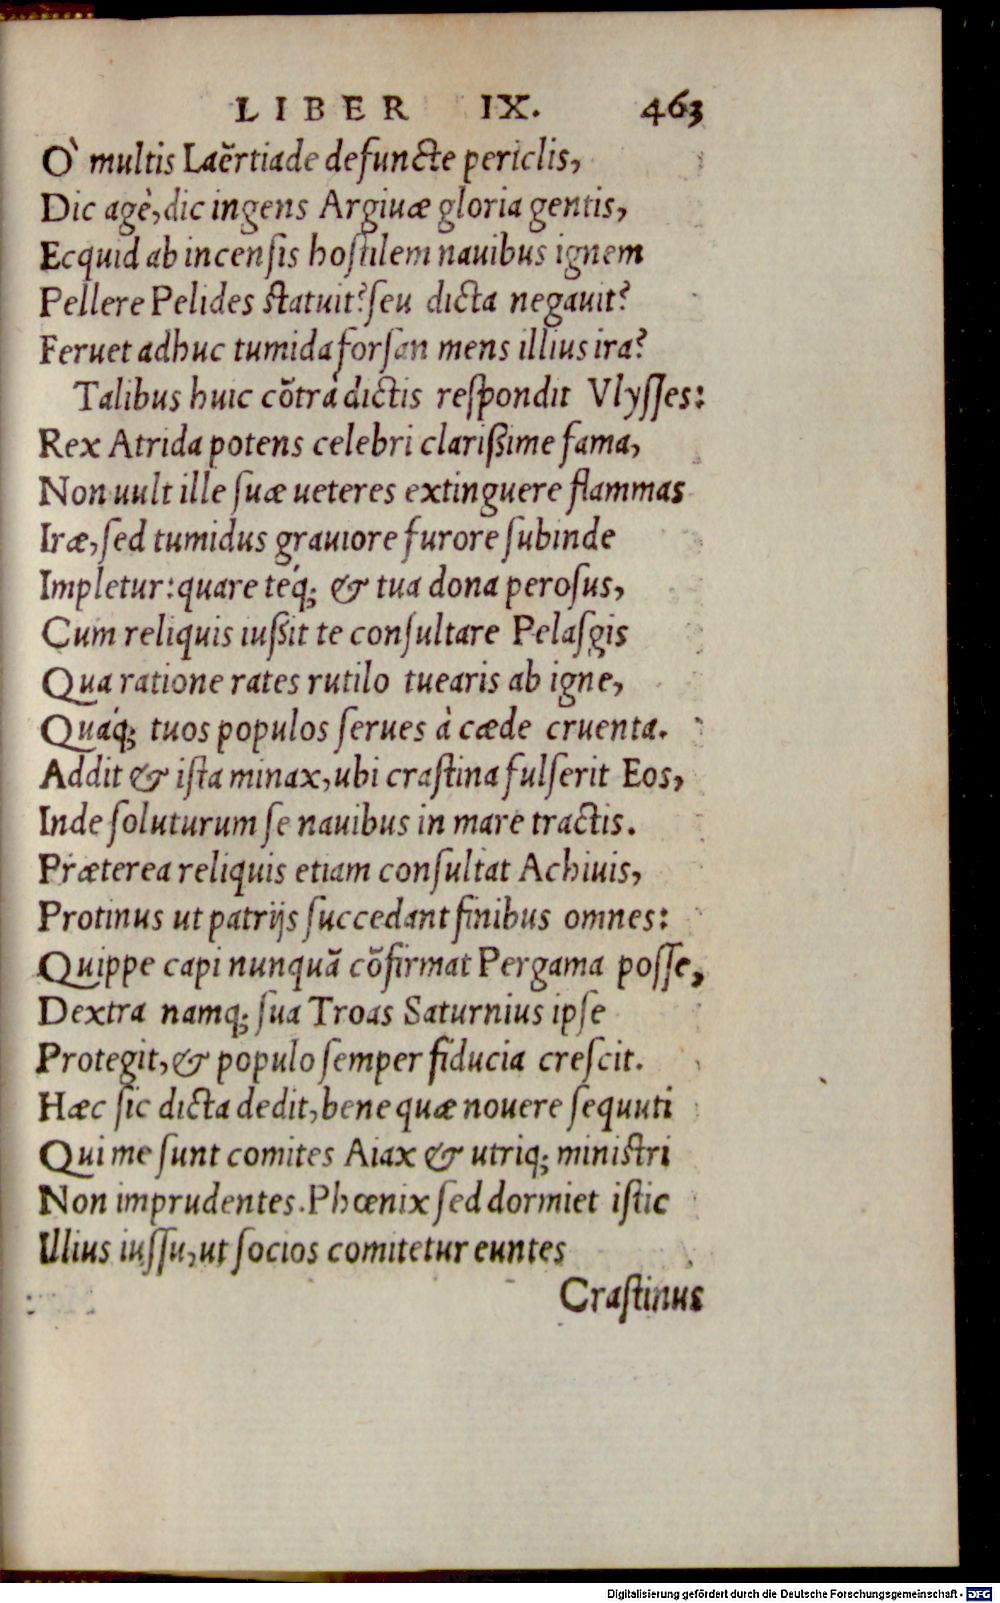 LIBER IX. 463
Ò multis Laẽrtiade defuncte periclis,
Dic agè, dic ingens Argiuæ gloria gentis,
Ecquid ab incensis hostilem nauibus ignem
Pellere Pelides statuit? seu dicta negauit?
Feruet adhuc tumida forsan mens illius ira?
Talibus huic cõtrà dictis respondit Vlysses:
Rex Atrida potens celebri clarißime fama,
Non uult ille suæ ueteres extinguere flammas
Iræ, sed tumidus grauiore furore subinde
Impletur: quare teq́; & tua dona perosus,
Cum reliquis iußit te consultare Pelasgis
Qua ratione rates rutilo tuearis ab igne,
Quáq; tuos populos serues à cæde cruenta.
Addit & ista minax, ubi crastina fulserit Eos,
Inde soluturum se nauibus in mare tractis.
Præterea reliquis etiam consultat Achiuis,
Protinus ut patrijs succedant finibus omnes:
Quippe capi nunquã cõfirmat Pergama posse,
Dextra namq; sua Troas Saturnius ipse
Protegit, & populo semper fiducia crescit.
Hæc sic dicta dedit, bene quæ nouere sequuti
Qui me sunt comites Aiax & utriq; ministri
Non imprudentes. Phœnix sed dormiet istic
Illius iussu, ut socios comitetur euntes
Crastinus
Digitalisierung gefördert durch die Deutsche Forschungsgemeinschaft - DFG